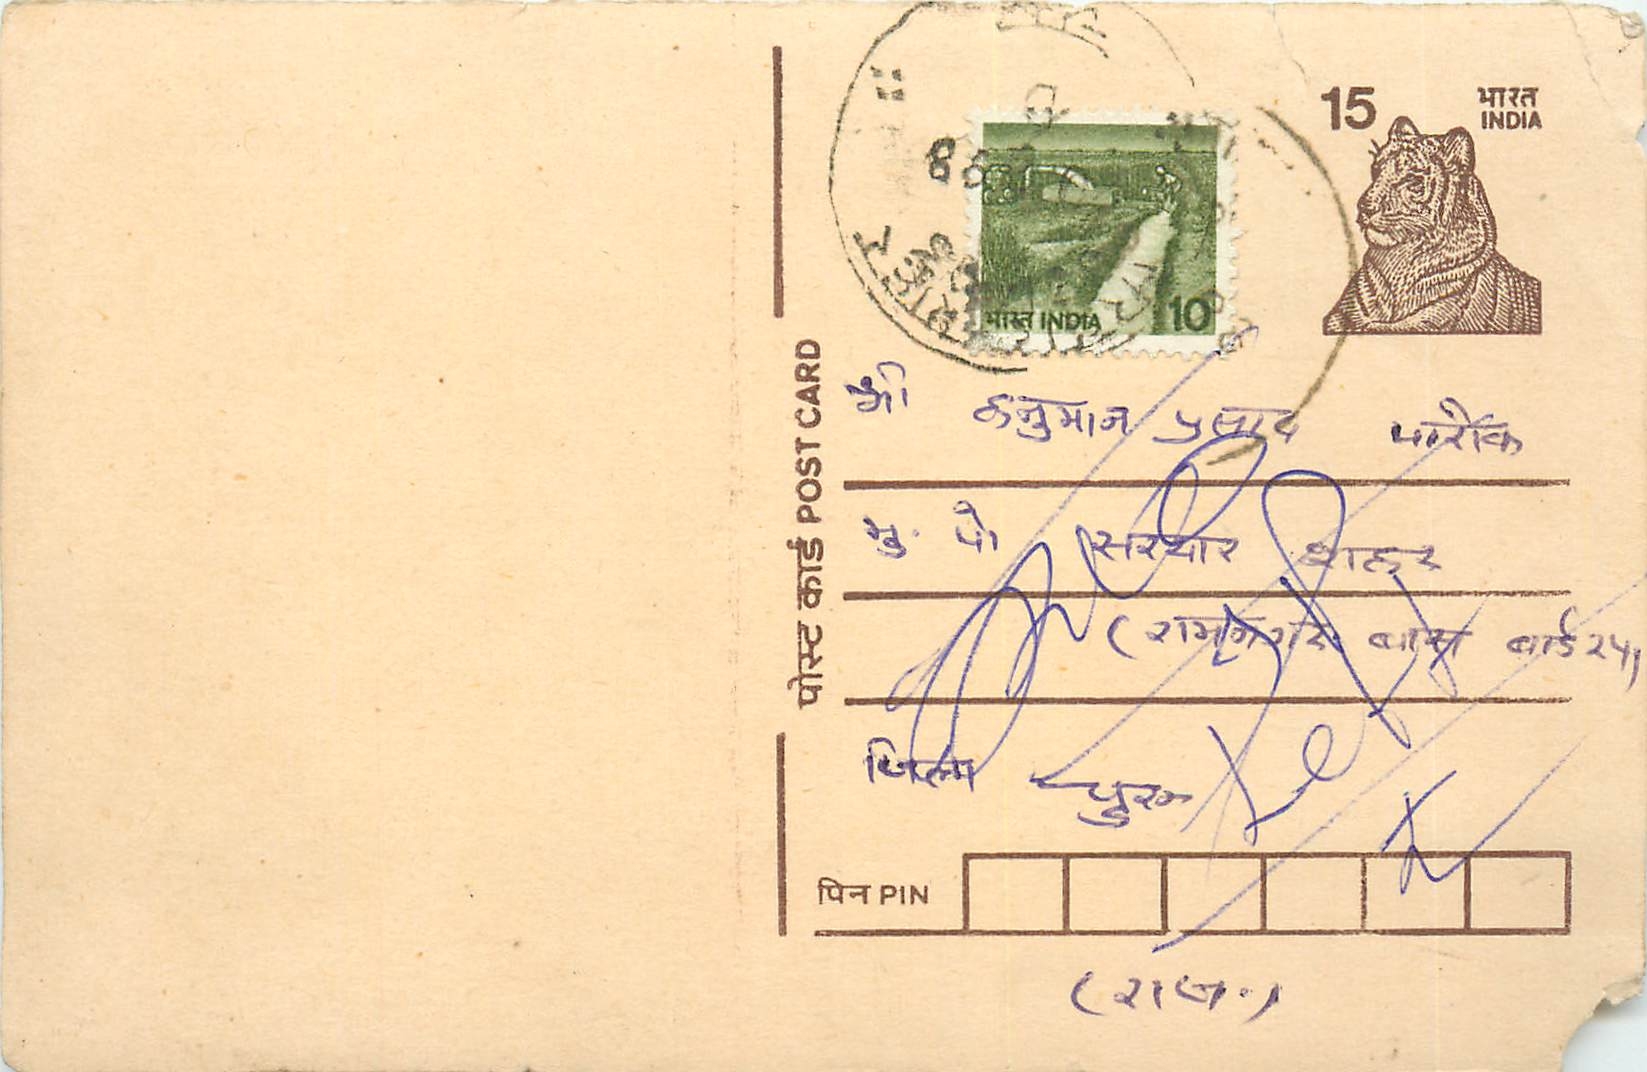 15 भारत
INDIA
भारत INDIA 10
पोस्ट कार्ड POST CARD
श्री हनुमान प्रसाद पारीक
मु. पो सरदार शहर
(रामनगर बास वार्ड 24)
जिला चुरू
पिन PIN
(राज.)